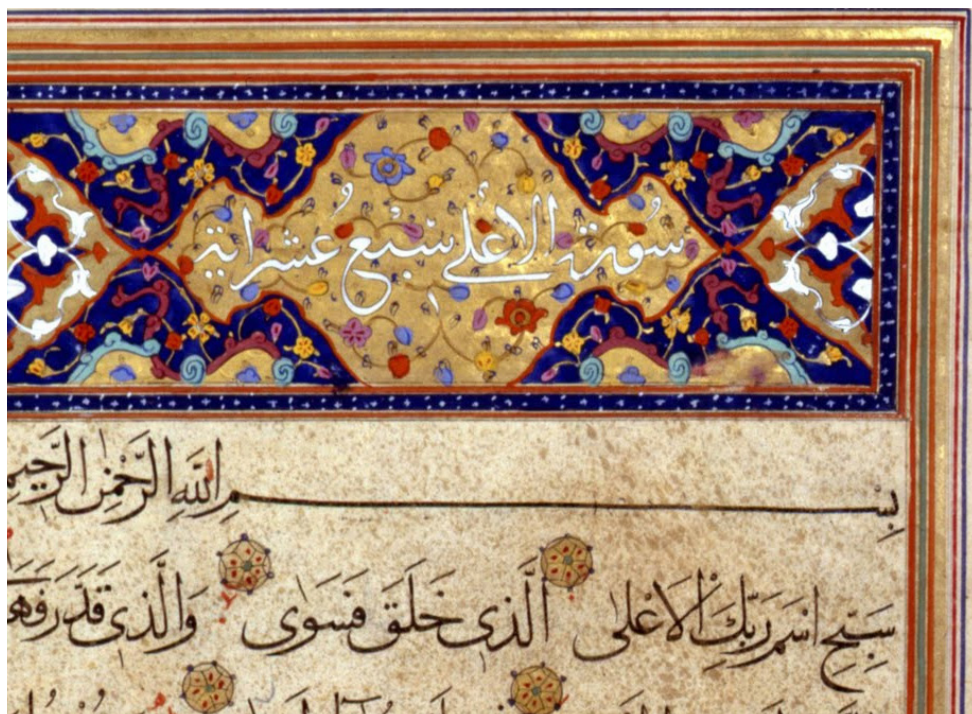 سورة الاعلى سبع عشر اية
بِسْمِ اللَّهِ الرَّحْمٰنِ الرَّحِيمِ
سَبِّحِ اسْمَ رَبِّكَ الْاَعْلٰى الَّذِى خَلَقَ فَسَوٰى وَالَّذِى قَدَّرَ